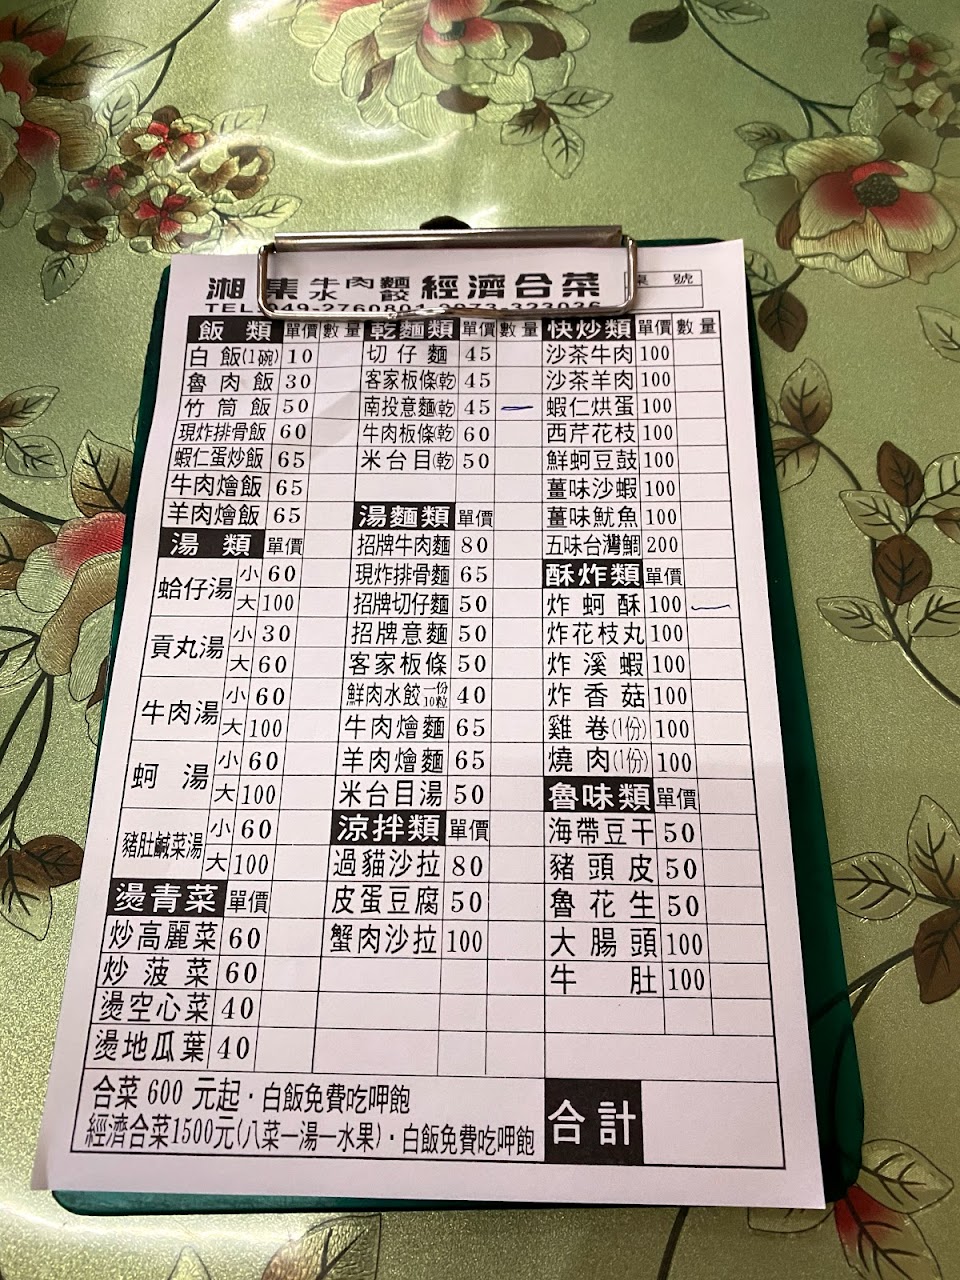 湘集 牛肉麵 水餃 經濟合菜
桌 號
TEL:049-2760801
飯類 單價 數量
白飯(1碗) 10
魯肉飯 30
竹筒飯 50
現炸排骨飯 60
蝦仁蛋炒飯 65
牛肉燴飯 65
羊肉燴飯 65
湯類 單價
蛤仔湯 小 60
大 100
貢丸湯 小 30
大 60
牛肉湯 小 60
大 100
蚵湯 小 60
大 100
豬肚鹹菜湯 小 60
大 100
燙青菜 單價
炒高麗菜 60
炒菠菜 60
燙空心菜 40
燙地瓜葉 40
乾麵類 單價 數量
切仔麵 45
客家板條(乾) 45
南投意麵(乾) 45 一
牛肉板條(乾) 60
米台目(乾) 50
湯麵類 單價
招牌牛肉麵 80
現炸排骨麵 65
招牌切仔麵 50
招牌意麵 50
客家板條 50
鮮肉水餃一份10粒 40
牛肉燴麵 65
羊肉燴麵 65
米台目湯 50
涼拌類 單價
過貓沙拉 80
皮蛋豆腐 50
蟹肉沙拉 100
快炒類 單價 數量
沙茶牛肉 100
沙茶羊肉 100
蝦仁烘蛋 100
西芹花枝 100
鮮蚵豆鼓 100
薑味沙蝦 100
薑味魷魚 100
五味台灣鯛 200
酥炸類 單價
炸蚵酥 100 一
炸花枝丸 100
炸溪蝦 100
炸香菇 100
雞卷(1份) 100
燒肉(1份) 100
魯味類 單價
海帶豆干 50
豬頭皮 50
魯花生 50
大腸頭 100
牛肚 100
合菜 600 元起·白飯免費吃呷飽
經濟合菜1500元(八菜一湯一水果)·白飯免費吃呷飽
合計